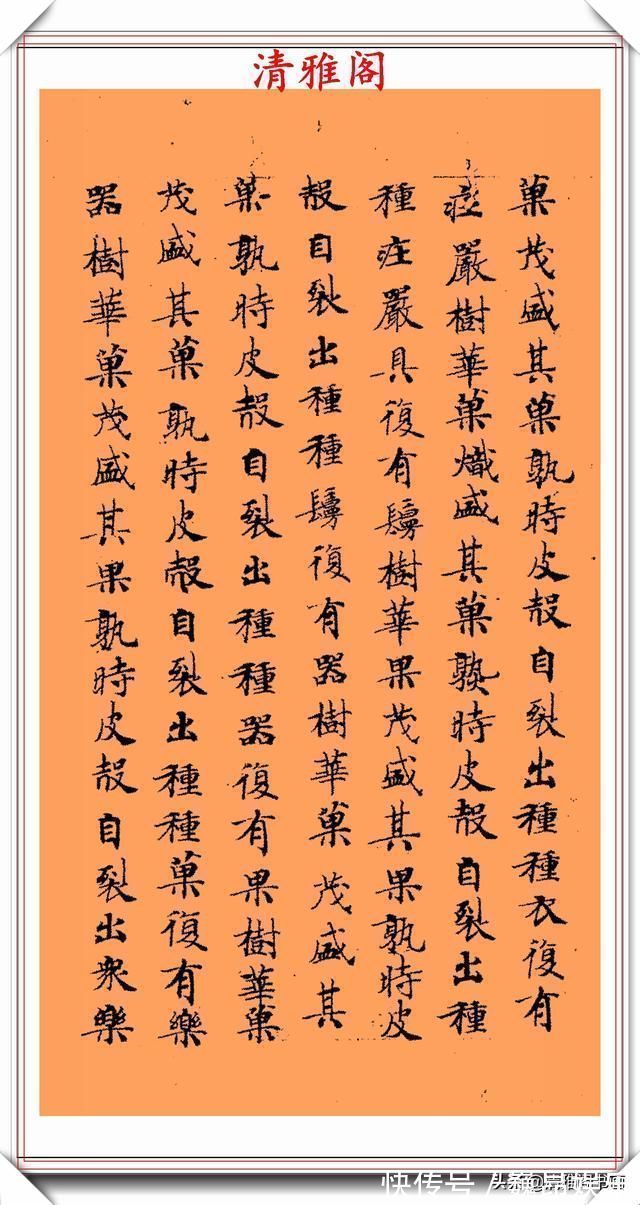 清雅阁
菓茂盛其菓孰時皮殼自裂出種種衣復有
莊嚴樹華菓熾盛其菓孰時皮殼自裂出種
種莊嚴具復有鬘樹華果茂盛其果孰時皮
殼自裂出種種鬘復有器樹華菓茂盛其
菓孰時皮殼自裂出種種器復有果樹華菓
茂盛其菓孰時皮殼自裂出種種菓復有樂
器樹華菓茂盛其果孰時皮殼自裂出衆樂
快传号/
头条